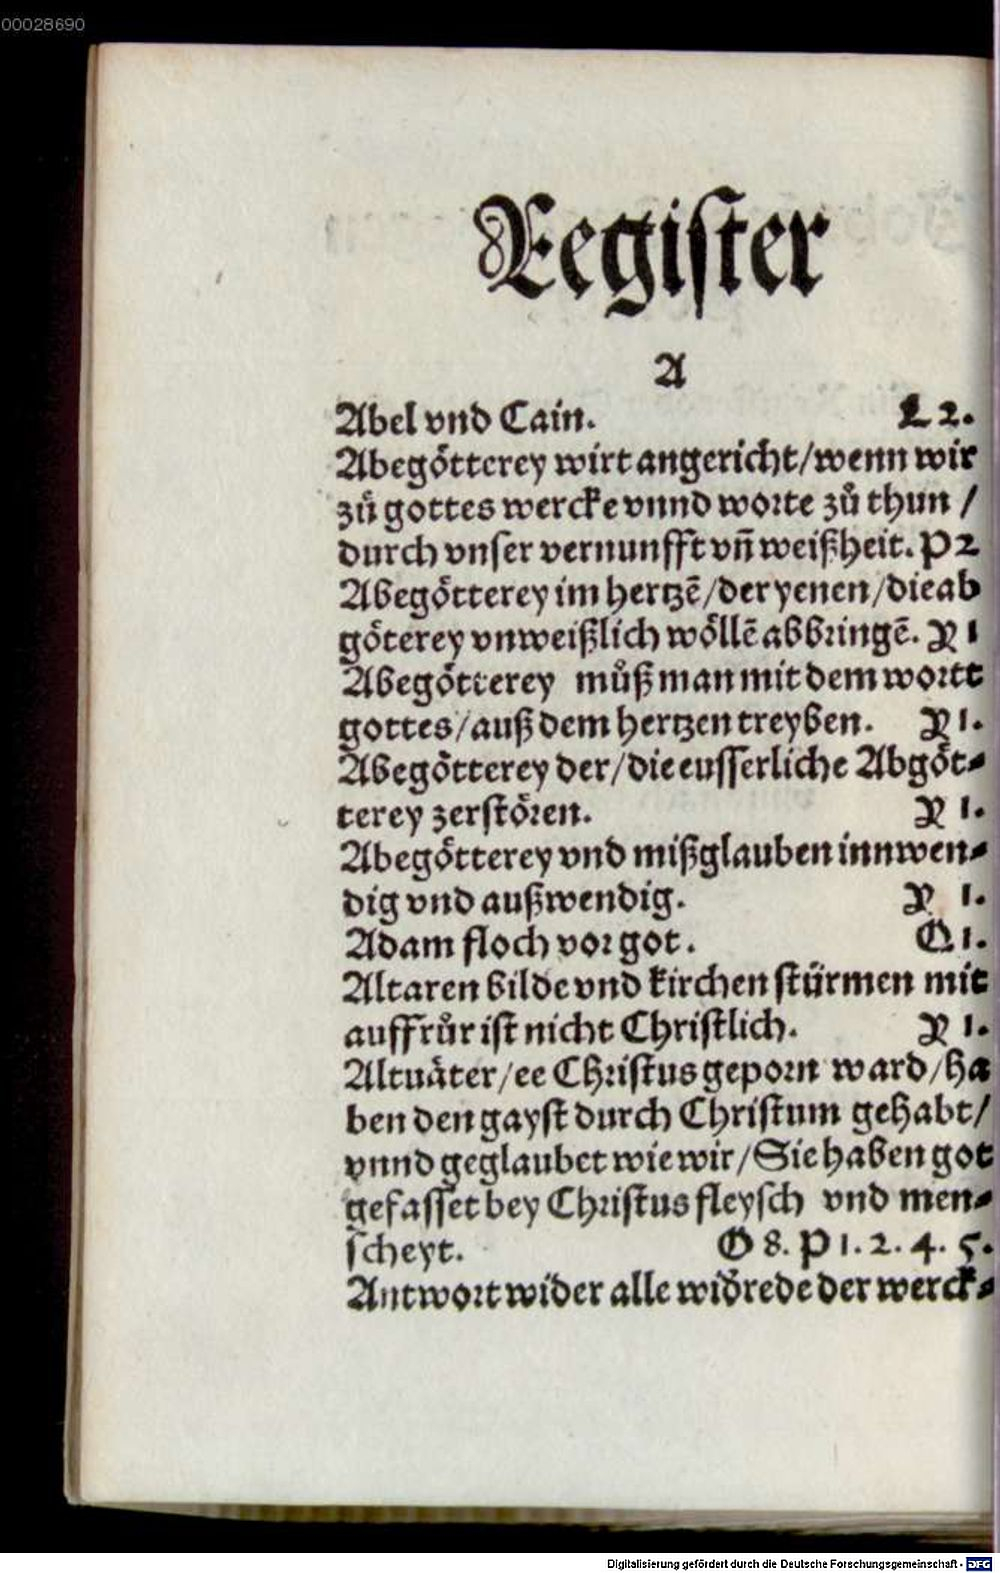 00028690
Register
A
Abel vnd Cain. L 2.
Abegötterey wirt angericht/wenn wir
zů gottes wercke vnnd worte zů thun /
durch vnser vernunfft vñ weißheit. P 2
Abegötterey im hertzē/der yenen/die ab
göterey vnweißlich wöllē abbringē. R 1
Abegötterey můß man mit dem wortt
gottes/auß dem hertzen treyben. R 1.
Abegötterey der/die eusserliche Abgöt⸗
terey zerstören. R 1.
Abegötterey vnd mißglauben innwen⸗
dig vnd außwendig. R 1.
Adam floch vor got. Q 1.
Altaren bilde vnd kirchen stürmen mit
auffrůr ist nicht Christlich. R 1.
Altuäter/ee Christus geporn ward/ha
ben den gayst durch Christum gehabt/
vnnd geglaubet wie wir/Sie haben got
gefasset bey Christus fleysch vnd men⸗
scheyt. O 8. P 1. 2. 4. 5.
Antwort wider alle widrede der werck⸗
Digitalisierung gefördert durch die Deutsche Forschungsgemeinschaft - DFG